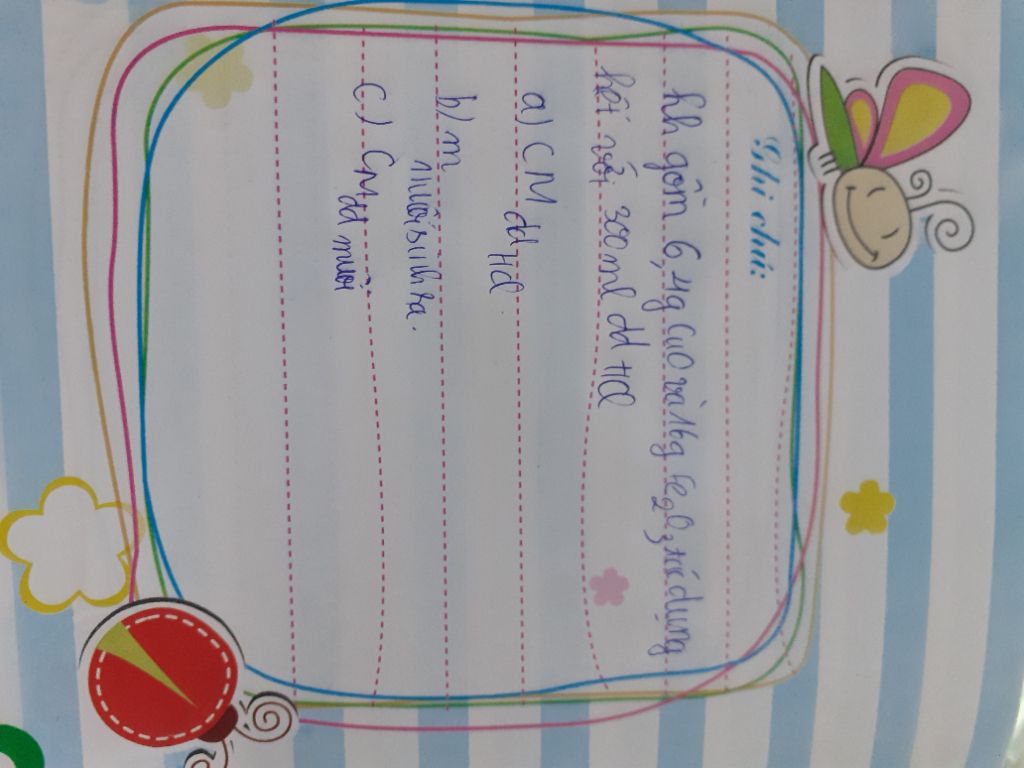 Ghi chú:
hh gồm 6,4g CuO và 16g Fe2O3 tác dụng
hết với 300ml dd HCl
a) CM dd HCl
b) m muối sinh ra.
c) CM dd muối